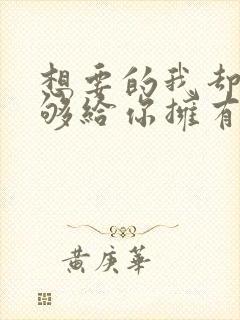 想要的我却
够給你擁有
黄庚華